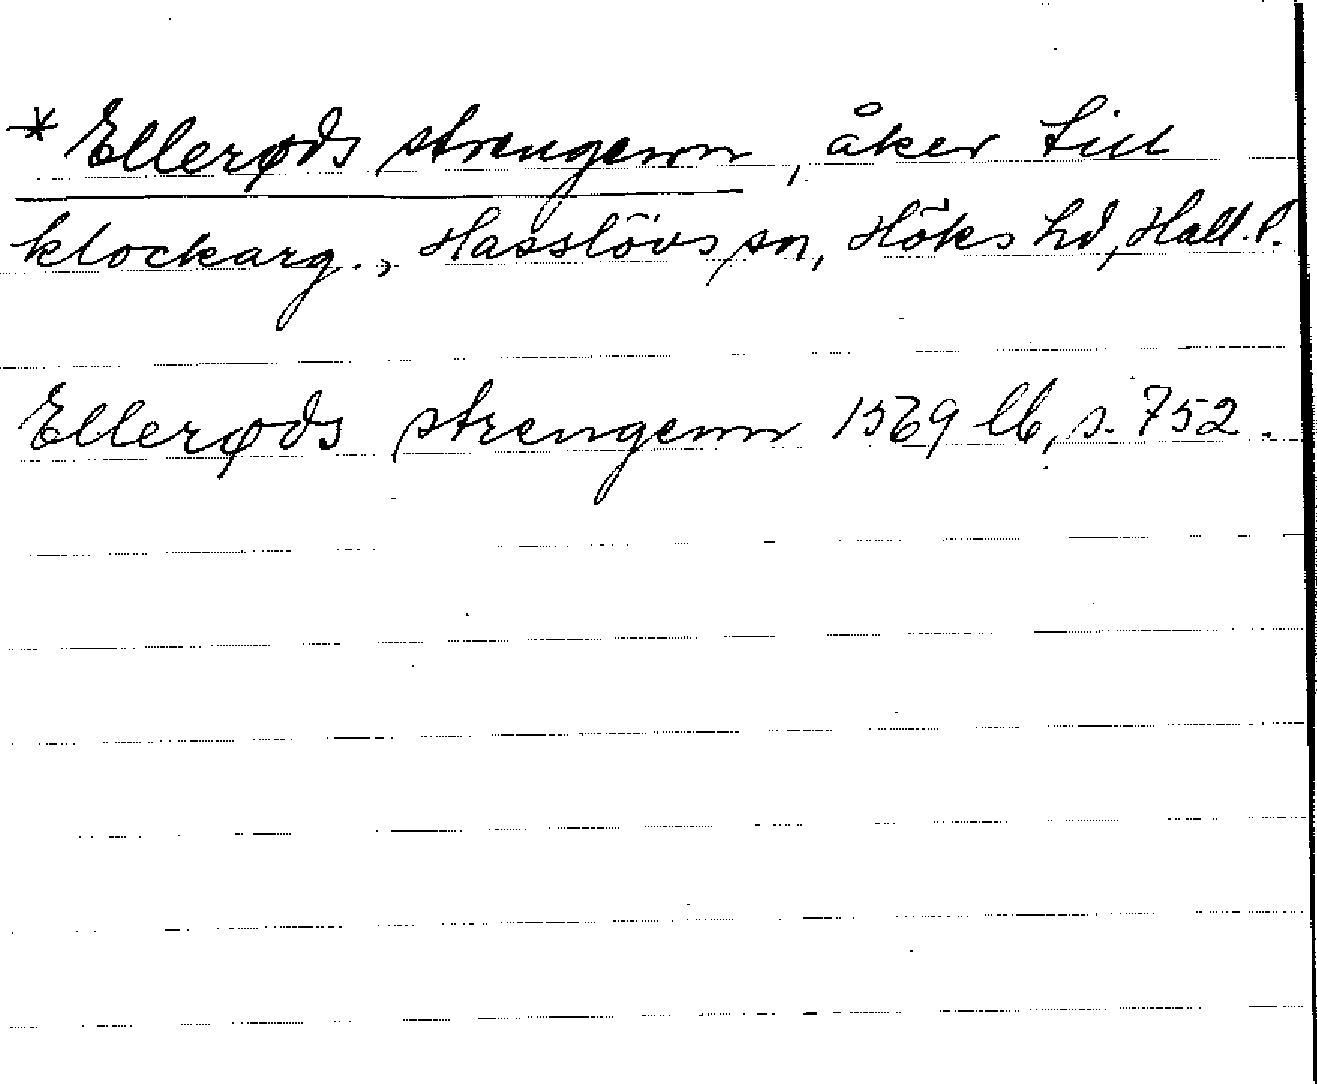 * Ellerøds strengenn, åker till
klockarg., Hasslövs sn, Höks hd, Hall. l.
Ellerøds strengenn 1569 lb, s. 752.